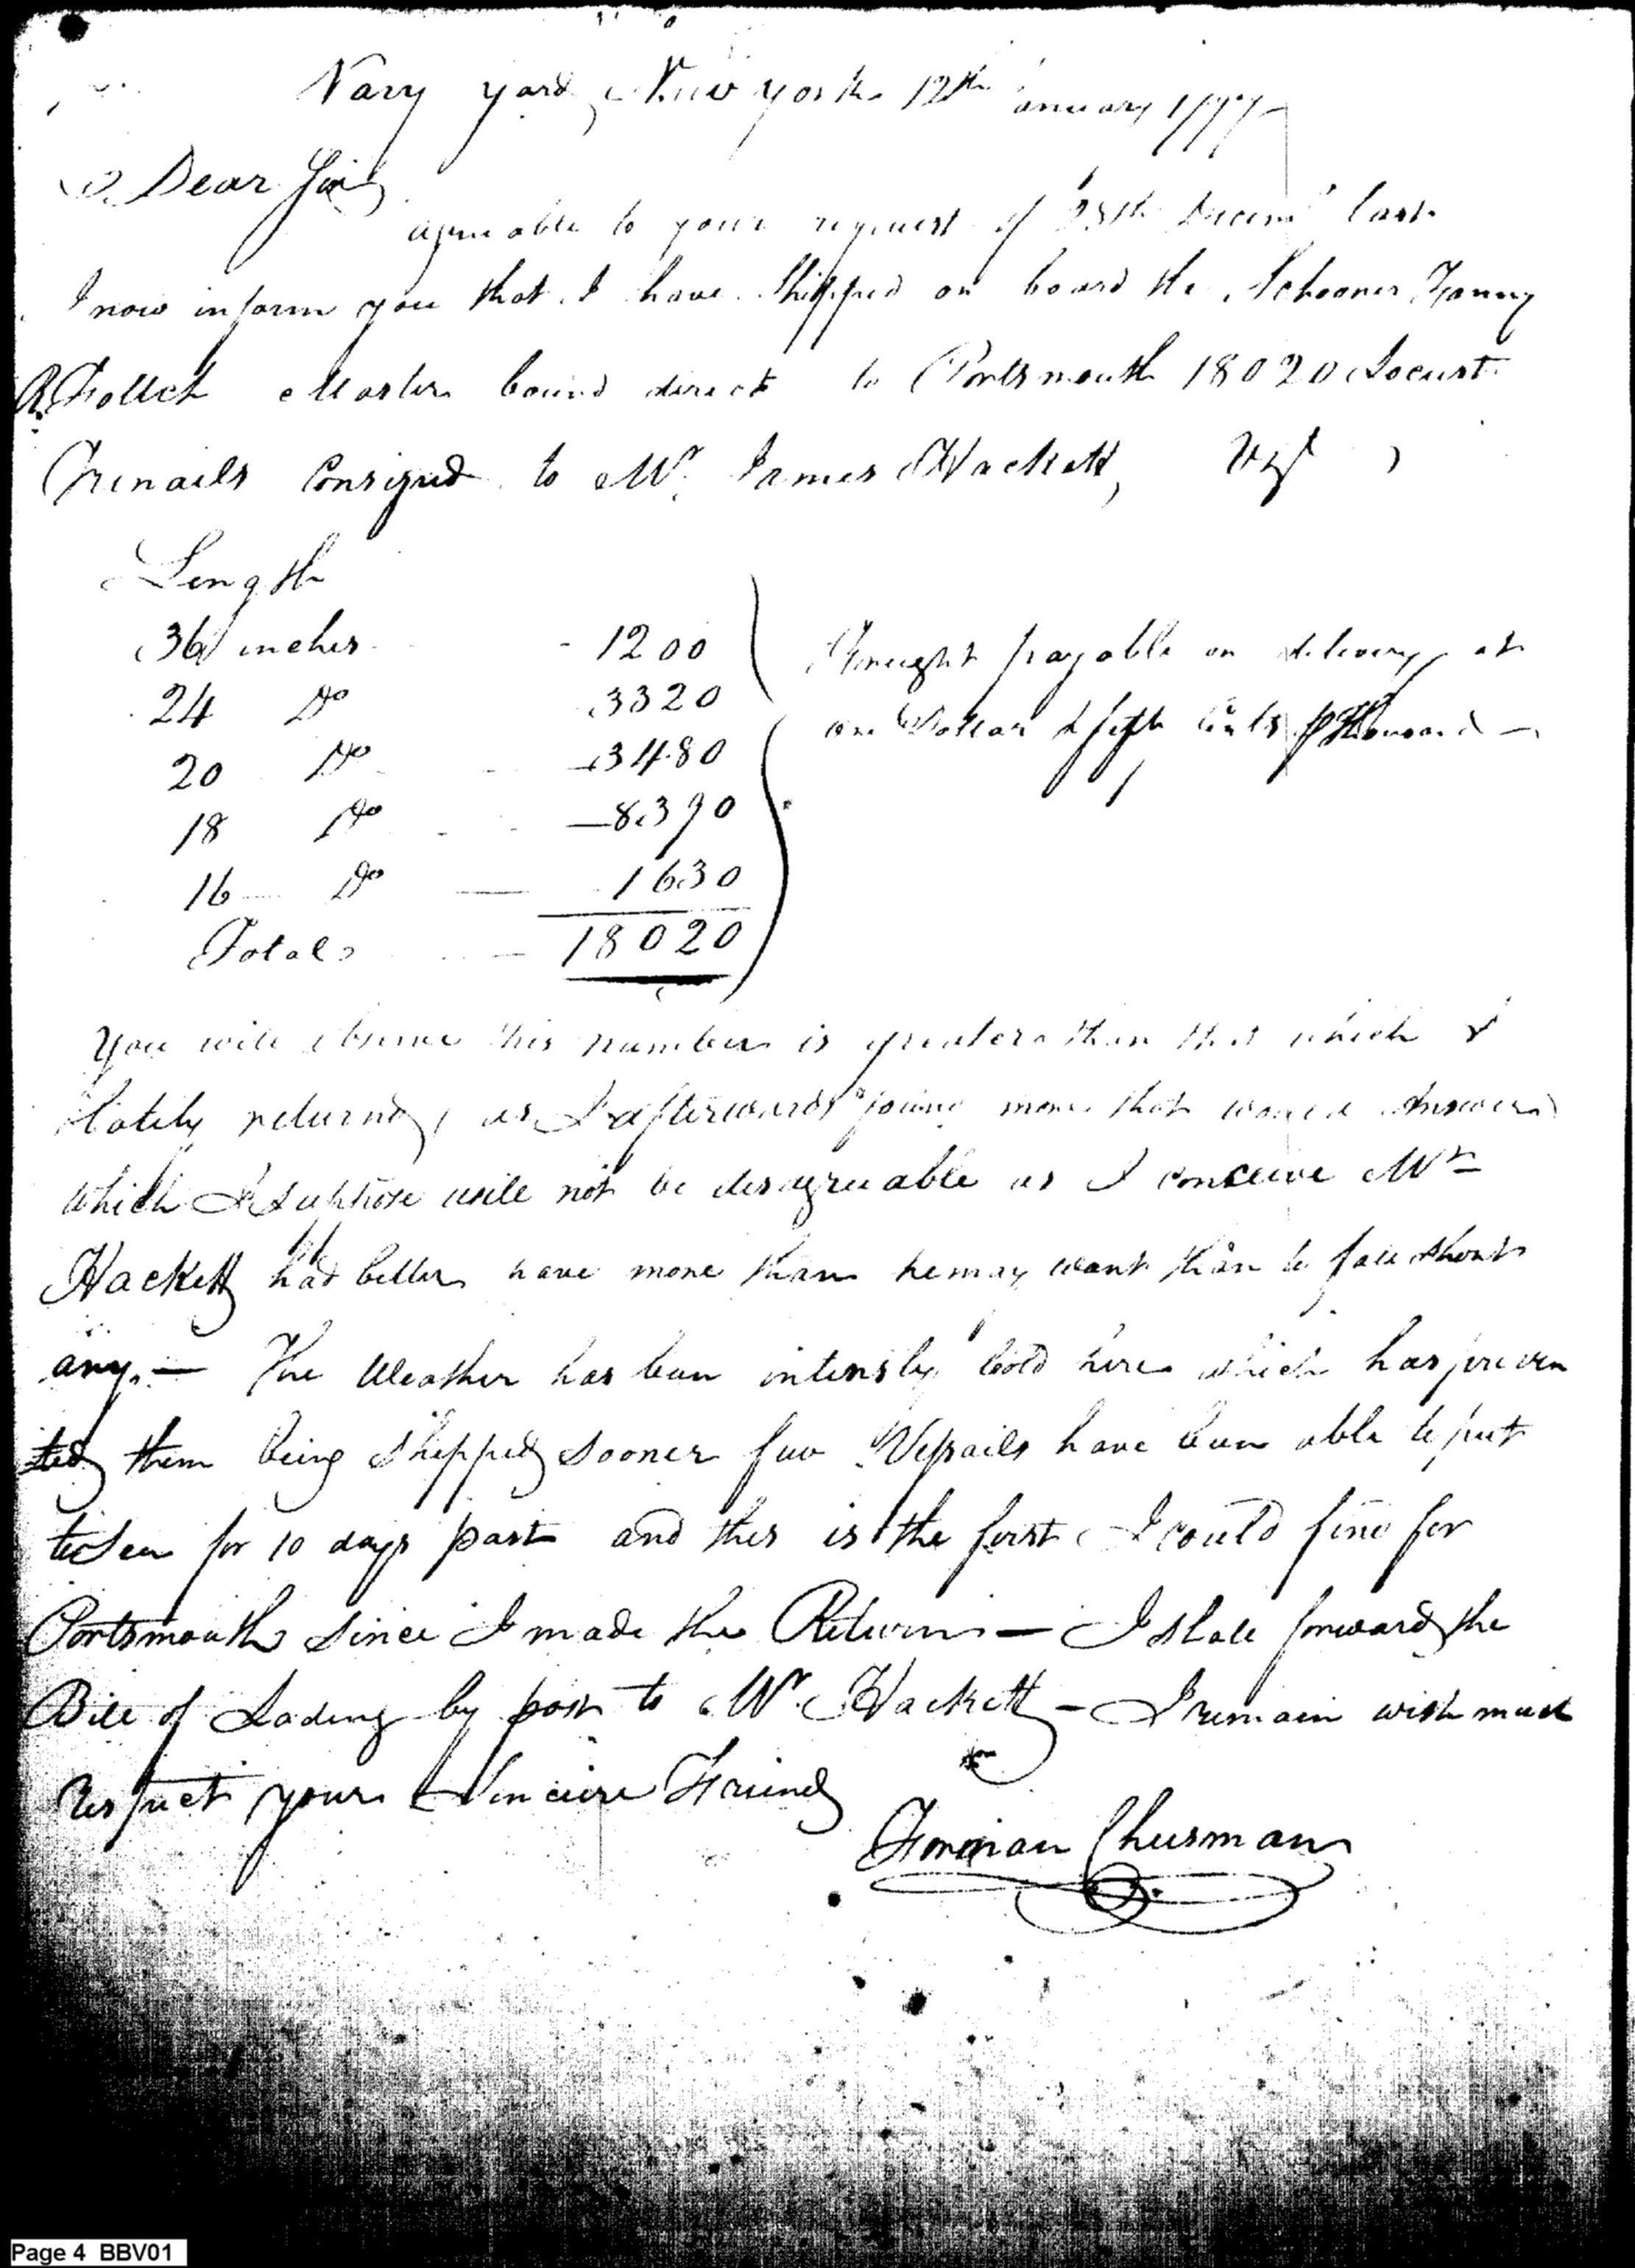 Navy yard New york 12th January 1797
Dear Sir
agreeable to your request of 25th Decem last
I now inform you that I have Shipped on board the Schooner Fanny
Master bound direct to Portsmouth 18020 Locust
Trenails Consigned to Mr. James Hackett, Vizt
Length
36 inches - 1200
24 Do 3320
20 Do - 3480
18 Do - 8390
16 Do - 1630
Total - 18020
Freight payable on delivery at
one Dollar & fifty Cents pr Thousand -
You will observe this number is greater than that which I
lately returned, as I afterwards found more that would Answer
which I suppose will not be disagreeable as I conceive Mr
Hackett had better have more than he may want than to fall short
any. — The Weather has been intensly Cold here which has preven
ted them being Shipped Sooner few Vessails have been able to put
to Sea for 10 days past and this is the first I could find for
Portsmouth Since I made the Return — I shall forward the
Bill of Lading by post to Mr. Hackett - I remain with much
Respect your Sincere Friend
Forman Cheesman
Page 4 BBV01